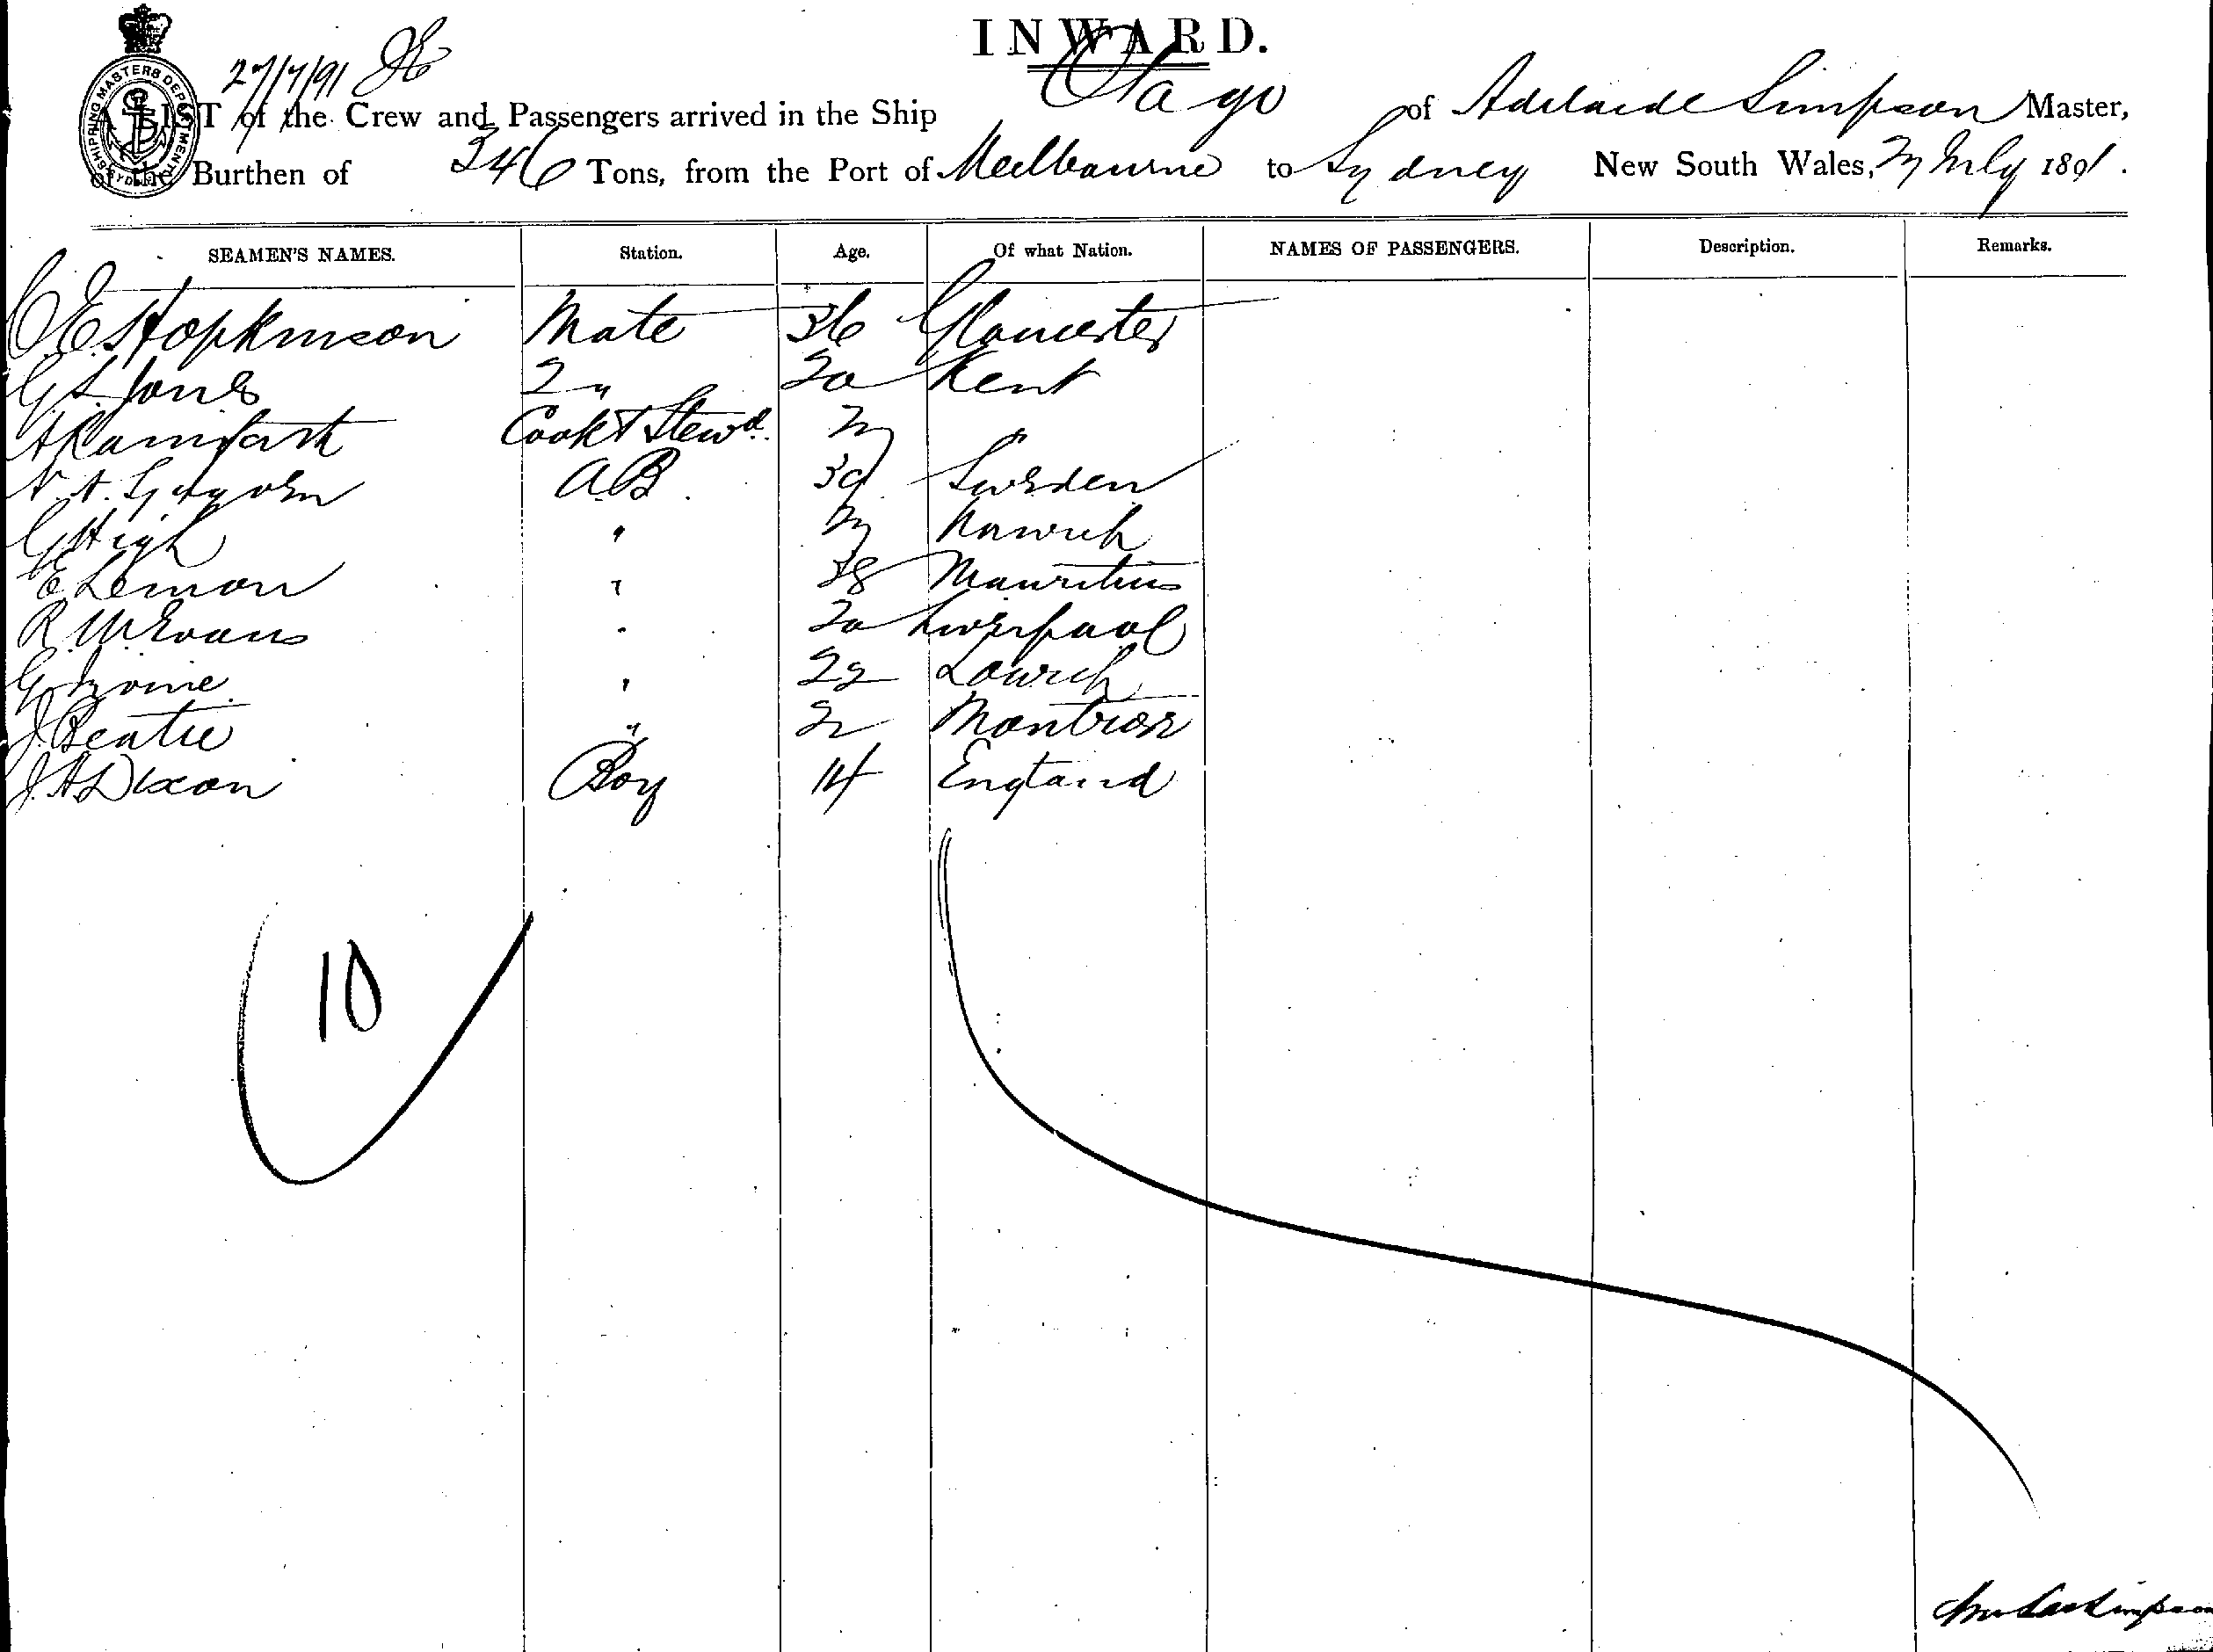 INWARD.
27/7/91
SHIPPING MASTERS DEPARTMENT SYDNEY
A LIST of the Crew and Passengers arrived in the Ship Otago of Adelaide Simpson Master,
of the Burthen of 346 Tons, from the Port of Melbourne to Sydney New South Wales, 27 July 1891.
SEAMEN'S NAMES. Station. Age. Of what Nation. NAMES OF PASSENGERS. Description. Remarks.
C. E. Hopkinson Mate 36 Gloucester
G. S. Jones 2 " 20 Kent
Cook & Stewd. 27
A B 39 Sweden
G High " 27 Norwich
E Lemon " 38 Mauritius
R. W. Evans " 20 Liverpool
G. Irvine " 22
J. Beatie " 22 Montrose
J. A. Dixon Boy 14 England
10
Simpson